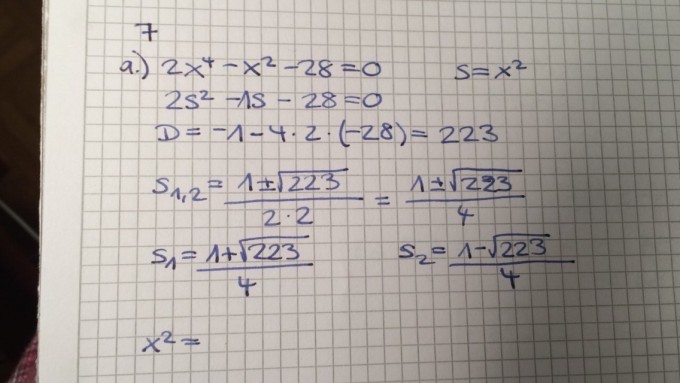 7
a.) 2x⁴ - x² - 28 = 0 s = x²
2s² - 1s - 28 = 0
D = -1 - 4 · 2 · (-28) = 223
s₁,₂ = (1 ± √223)/(2 · 2) = (1 ± √223)/4
s₁ = (1 + √223)/4 s₂ = (1 - √223)/4
x² =